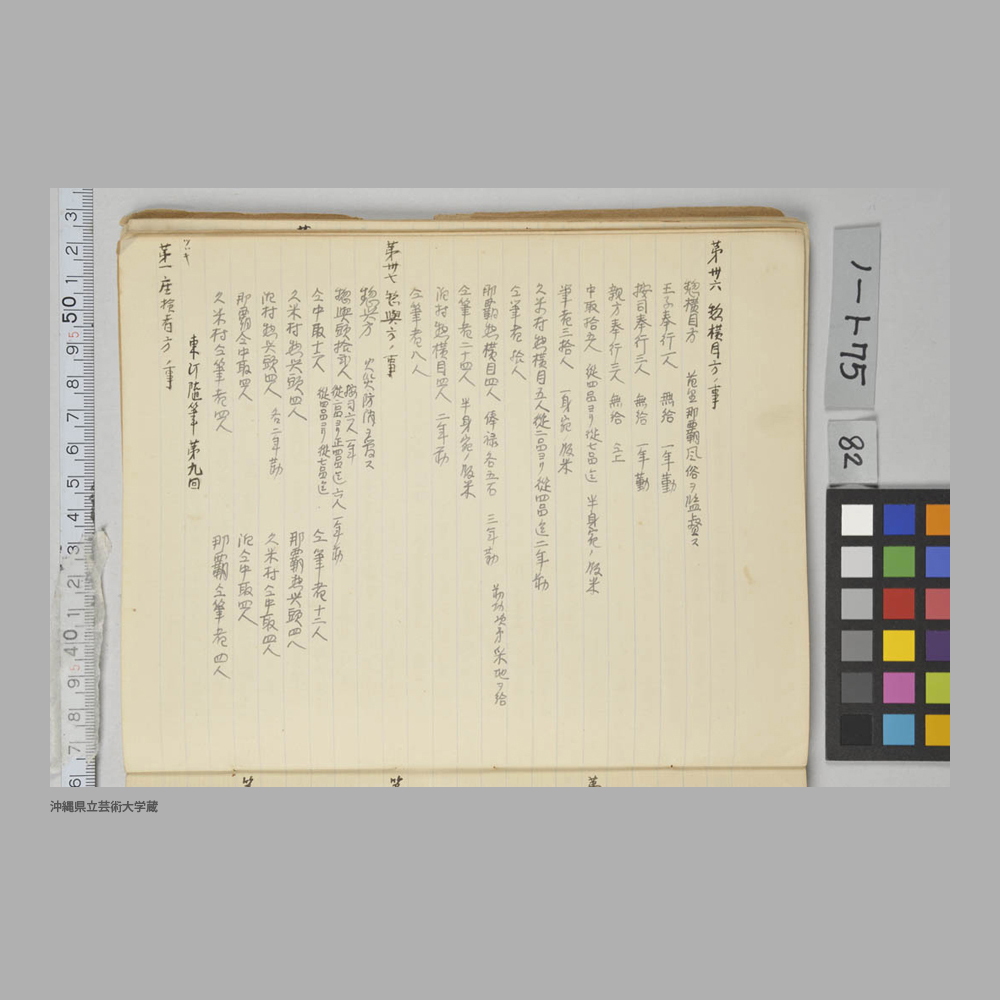 第卅六 惣横目方ノ事
惣横目方 首里那覇風俗ヲ監督ス
王子奉行一人 無給 一年勤
按司奉行三人 無給 一年勤
親方奉行三人 無給 仝上
中取拾五人 従四品ヨリ従七品迄 半身宛ノ飯米
筆者三拾人 一身宛飯米
久米村惣横目五人 従二品ヨリ従四品迄 二年勤
仝筆者拾人
那覇惣横目四人 俸禄各五石 三年勤 采地ヲ給
仝筆者二十四人 半身宛ノ飯米
泊村惣横目四人 二年勤
仝筆者八人
第卅七 惣與方ノ事
惣與方 火災防消主督ス
惣與頭拾弐人 按司六人一年 従二品ヨリ正四品迄六人 一年勤
仝中取十二人 従四品ヨリ従七品迄 仝筆者十二人
久米村惣與頭四人 那覇惣與頭四人
泊村惣與頭四人 各二年勤 久米村仝中取四人
那覇仝中取四人 泊仝中取四人
久米村仝筆者四人 那覇仝筆者四人
東汀随筆 第九回
第一座検者方ノ事
ノート75
82
沖縄県立芸術大学蔵